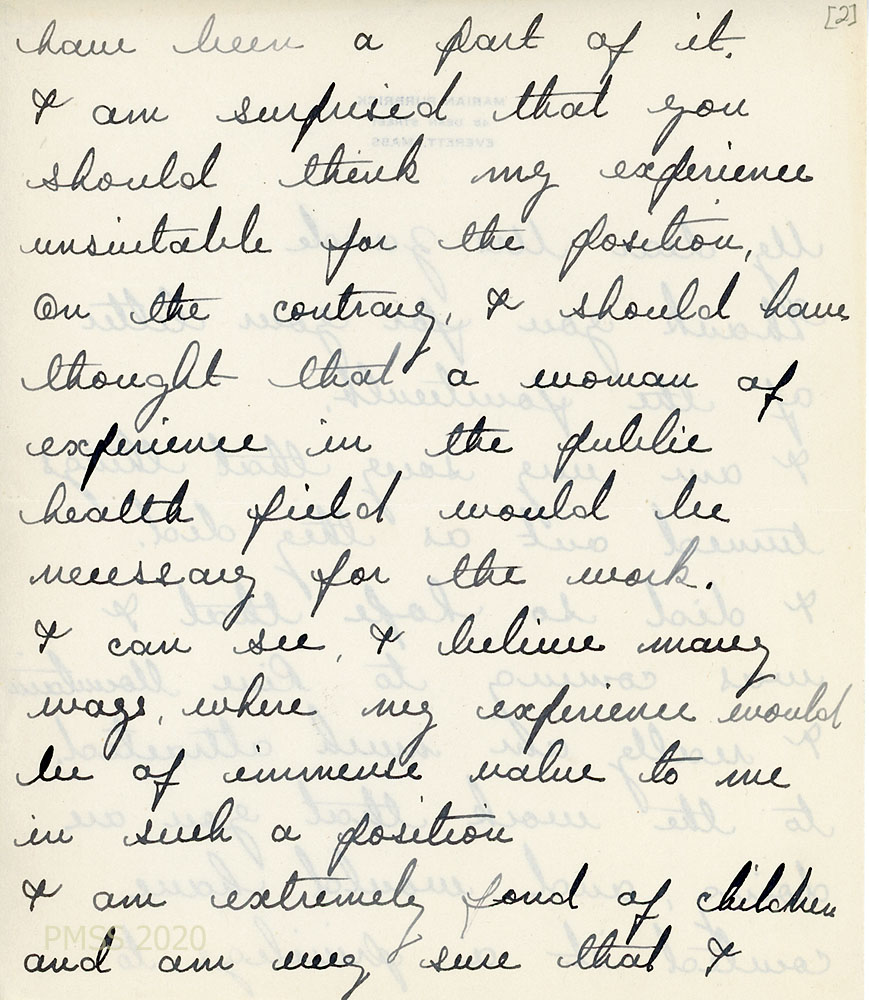 [2]
have been a part of it.
I am surprised that you
should think my experience
unsuitable for the position,
On the contrary, I should have
thought that a woman of
experience in the public
health field would be
necessary for the work.
I can see, I believe many
ways, where my experience would
be of immense value to me
in such a position
I am extremely fond of children
and am very sure that I
PMSS 2020